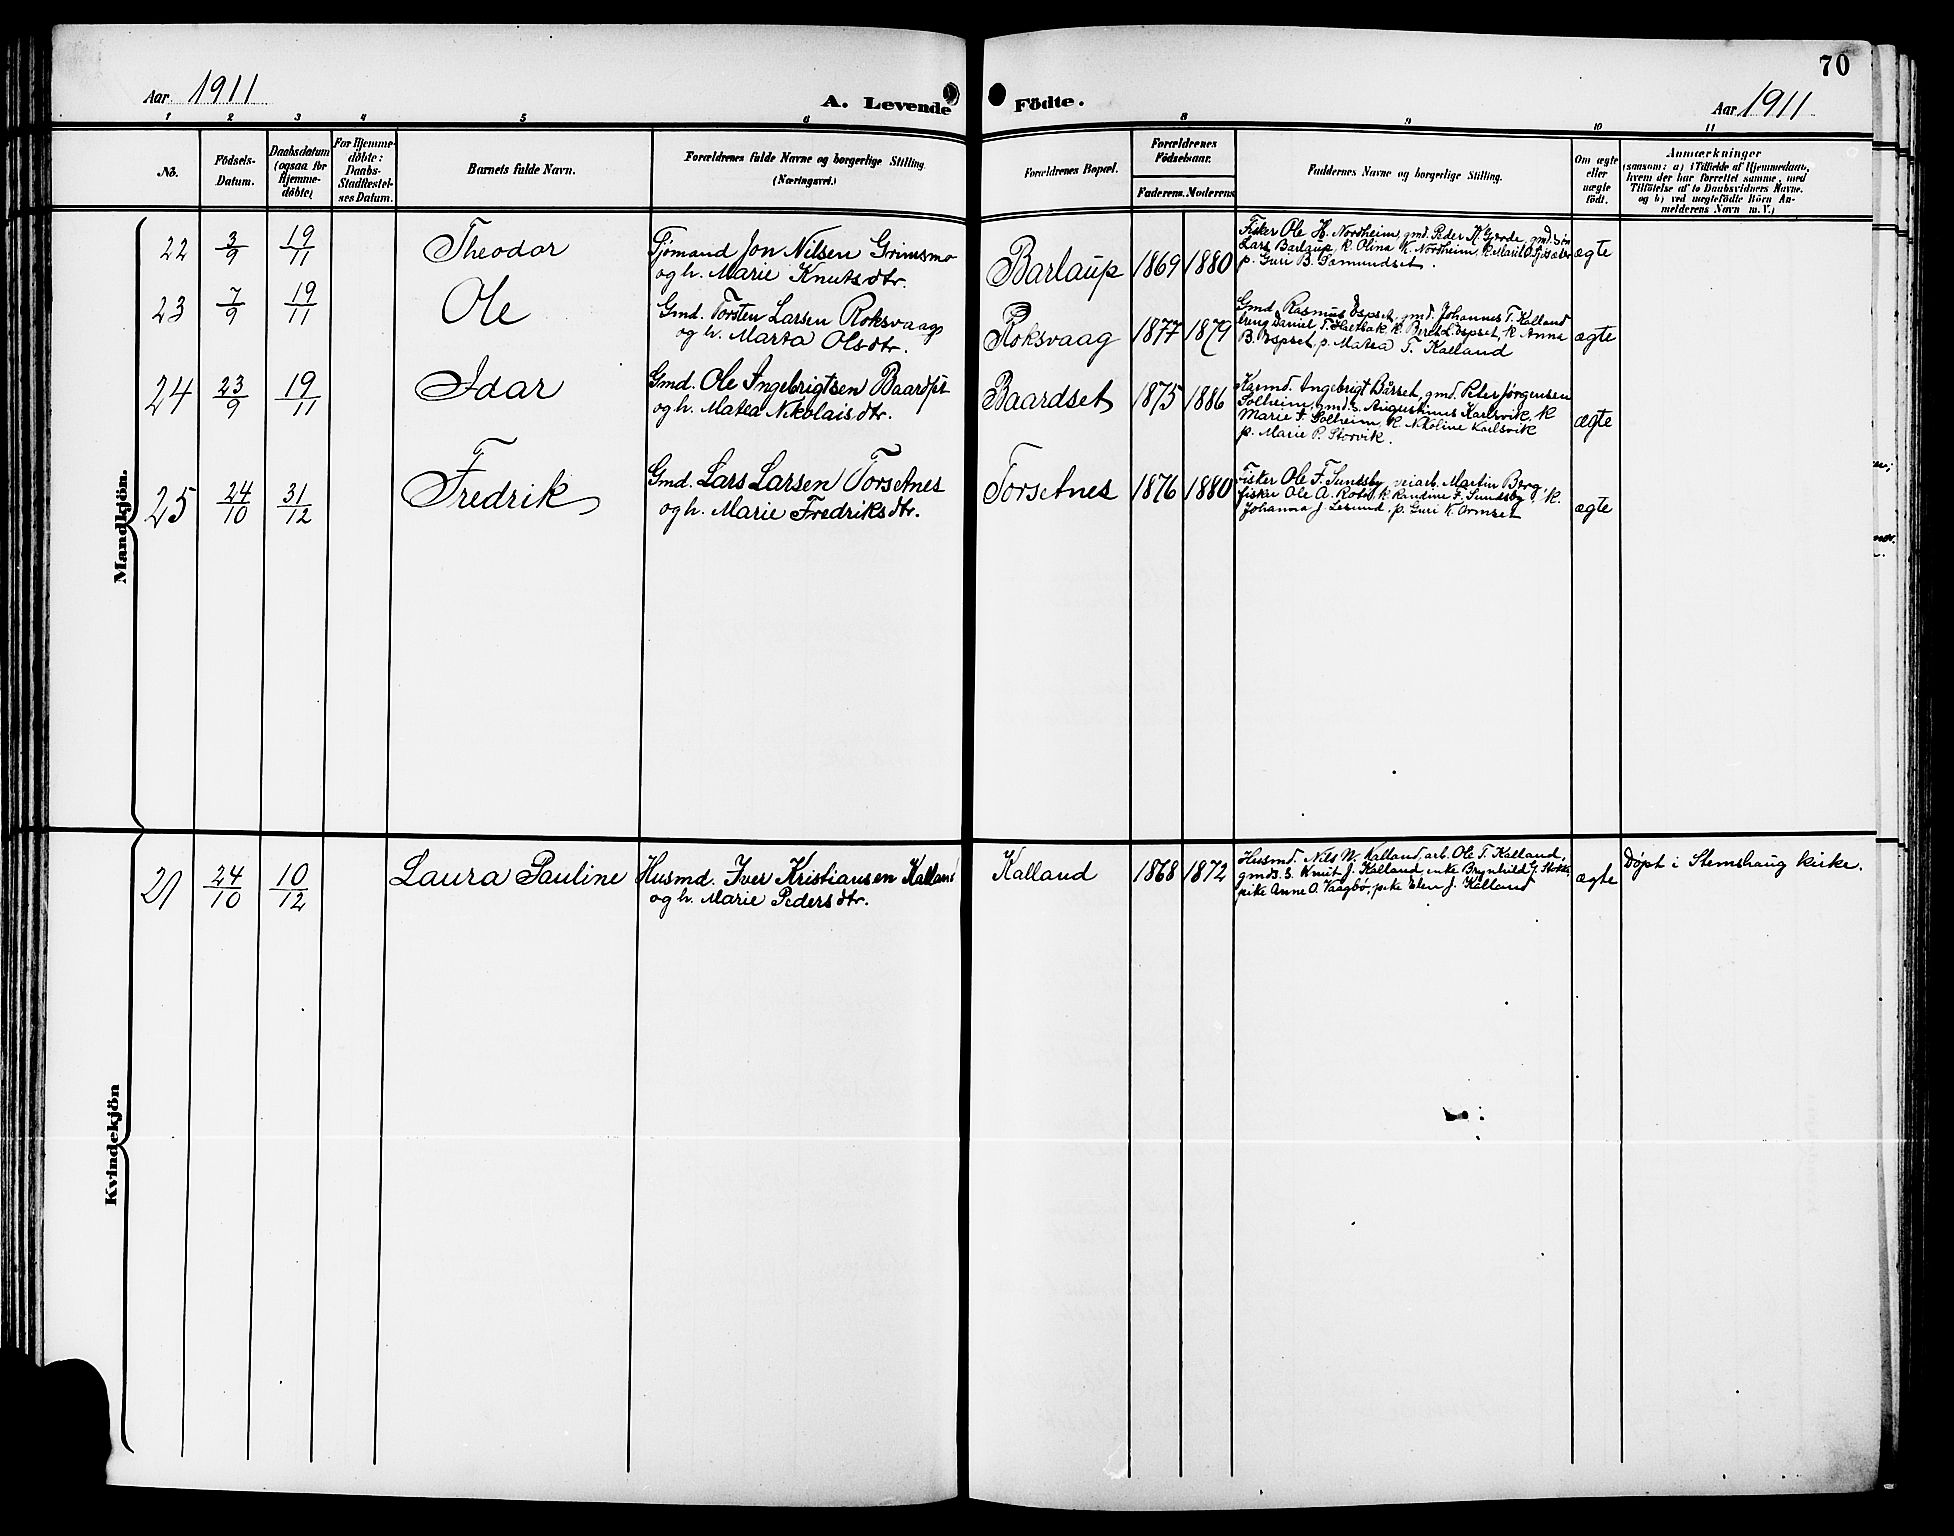 70
Aar 1911
A. Levende Födte.
Aar 1911
1 2 3 4 5 6 8 9 10 11
No.
Födsels-Datum.
Daabsdatum (ogsaa for Hjemmedöbte)
For Hjemmedöbte: Daabs-Stadfestelses Datum.
Barnets fulde Navn.
Forældrenes fulde Navne og borgerlige Stilling. (Næringsvei.)
Forældrenes Bopæl.
Forældrenes Födselsaar.
Faderens. Moderens.
Faddernes Navne og borgerlige Stilling.
Om ægte eller uægte födt.
Anmærkninger
(saasom: a) i Tilfælde af Hjemmedaab,
hvem der har forrettet samme, med
Tilföielse af to Daabsvidners Navne.
og b) ved uægtefödte Börn An-
melderens Navn m. V.)
Mandkjön.
22 3/9 19/11 Theodor
Jon Nilsen Grimsmo
og h. Marie Knutsdtr.
Barlaup 1869 1880
Fisker Ole H. Nordheim, gmd. Peder K. gmd. søn
Lars Barlaup, k. Olina K. Nordheim, k. Marit
p. Guri B.
ægte
23 7/9 19/11 Ole
Gmd. Torsten Larsen Roksvaag
og h. Marta Olsdtr.
Roksvaag 1877 1879
Gmd. Rasmus Espset, gmd. Johannes T. Kalland
Daniel T. k. Beret L. Espset, k. Anna
B. Espset, p. Matea T. Kalland
ægte
24 23/9 19/11 Idar
Gmd. Ole Ingebrigtsen
og h. Matea Nikolaisdtr.
Baardset 1875 1886
Ingebrigt Bårset, gmd. Peter Jørgensen
Solheim, gmd. s. Augustinus Karlsvik, k.
Marie F. Solheim, k. Nikoline Karlsvik
p. Marie P. Storvik.
ægte
25 24/10 31/12 Fredrik
Gmd. Lars Larsen Torsetnes
og h. Marie Fredriksdtr.
Torsetnes 1876 1880
Fisker Ole F. Sundsby, veiarb. Martin Berg,
fisker Ole A. k. Randine F. Sundsby, k.
Johanna J. p. Guri K. Ormset
ægte
Kvindekjön
21 24/10 10/12 Laura Pauline
Husmd. Iver Kristiansen Kalland
og h. Marie Pedersdtr.
Kalland 1868 1872
Husmd. Nils N. Kalland, arb. Ole T. Kalland,
gmds. s. Knut J. Kalland, enke Brynhild J.
pike Anne O. Vaagbø, pike Elen J. Kalland
ægte
Døpt i Stemshaug kirke.